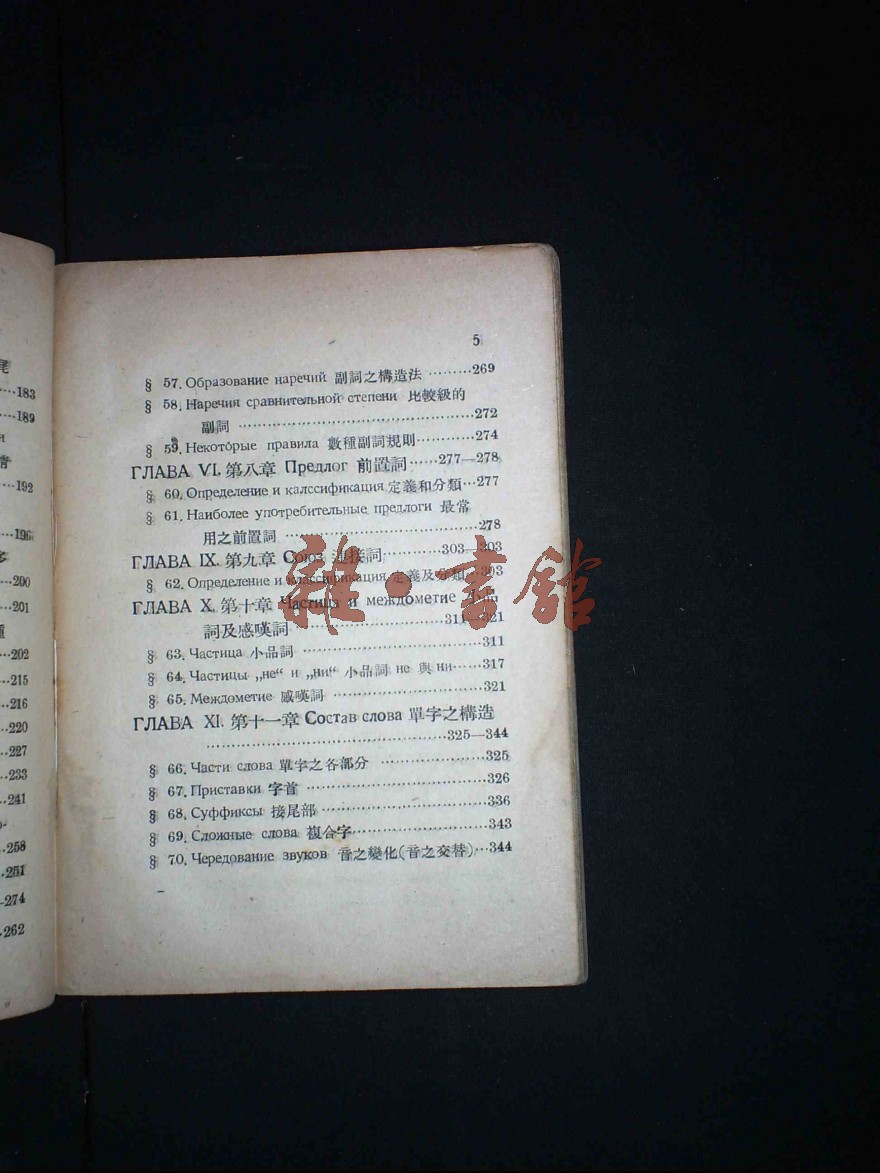 尾
183
189
и
音
192
196
多
200
201
種
202
215
216
220
227
233
241
258
251
274
262
5
§ 57. Образование наречий 副詞之構造法 ………269
§ 58. Наречия сравнительной степени 比較級的
副詞 ……………………………272
§ 59. Некоторые правила 數種副詞規則………274
ГЛАВА VI. 第八章 Предлог 前置詞……277—278
§ 60. Определение и калссификация 定義和分類…277
§ 61. Наиболее употребительные предлоги 最常
用之前置詞 ……………………278
ГЛАВА IX. 第九章 Союз 連接詞…………303—303
§ 62. Определение и классификация 定義及分類…303
ГЛАВА X. 第十章 Частица и междометие 小品
詞及感嘆詞 ……………………311—321
§ 63. Частица 小品詞 ……………………311
§ 64. Частицы „не“ и „ни“ 小品詞 не 與 ни……317
§ 65. Междометие 感嘆詞 …………………321
ГЛАВА XI. 第十一章 Состав слова 單字之構造
……………………………325—344
§ 66. Части слова 單字之各部分 ……………325
§ 67. Приставки 字首 ……………………326
§ 68. Суффиксы 接尾部 ……………………336
§ 69. Сложные слова 複合字…………………343
§ 70. Чередование звуков 音之變化(音之交替)…344
雜·書館